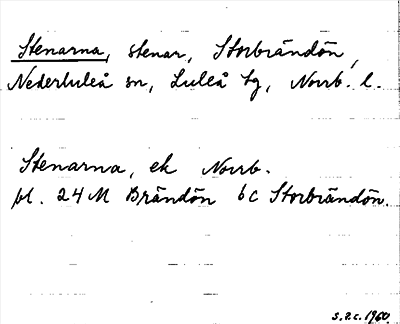 Stenarna, stenar, Storbrändön,
Nederluleå sn, Luleå tg, Norrb. l.
Stenarna, ek Norrb.
bl. 24 M Brändön 6c Storbrändön.
s.å.c. 1960